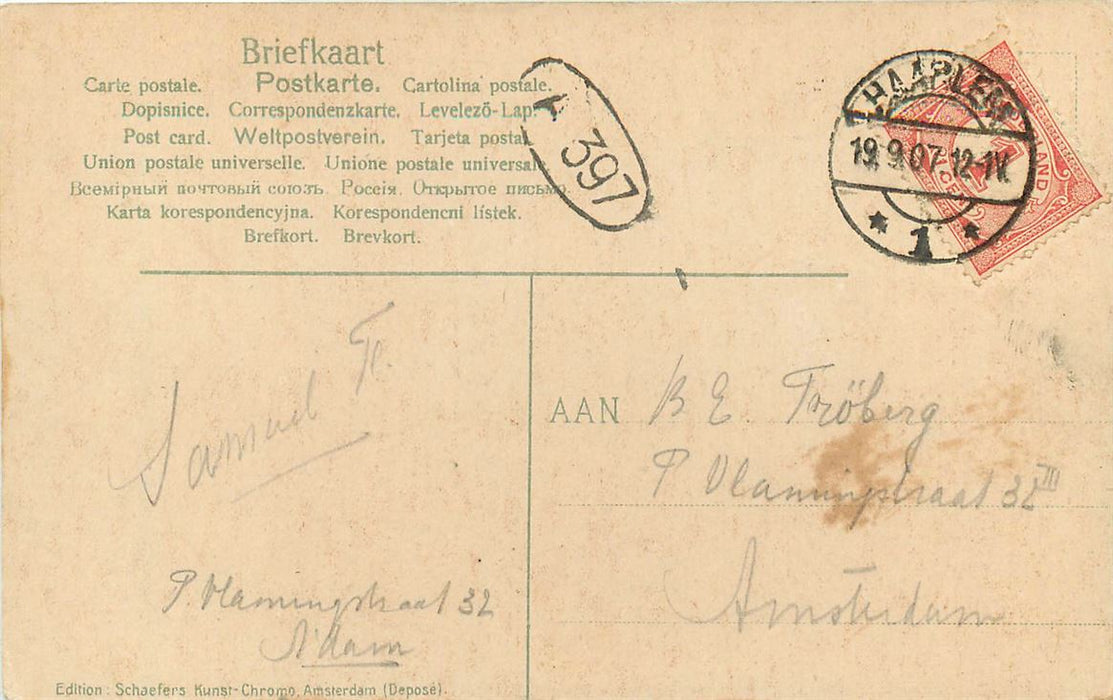 Briefkaart
Carte postale. Postkarte. Cartolina postale.
Dopisnice. Correspondenzkarte. Levelező-Lap.
Post card. Weltpostverein. Tarjeta postal
Union postale universelle. Unione postale universale
Всемірный почтовый союзъ. Россія. Открытое письмо.
Karta korespondencyjna. Korespondencni lístek.
Brefkort. Brevkort.
A 397
HAARLEM
19.9.07.12-1N.
* 1 *
AAN B E Fröberg
P Vlamingstraat 32 III
Amsterdam
Samuel Fr.
P. Vlamingstraat 32
A'dam
Edition: Schaefers Kunst-Chromo, Amsterdam (Deposé).